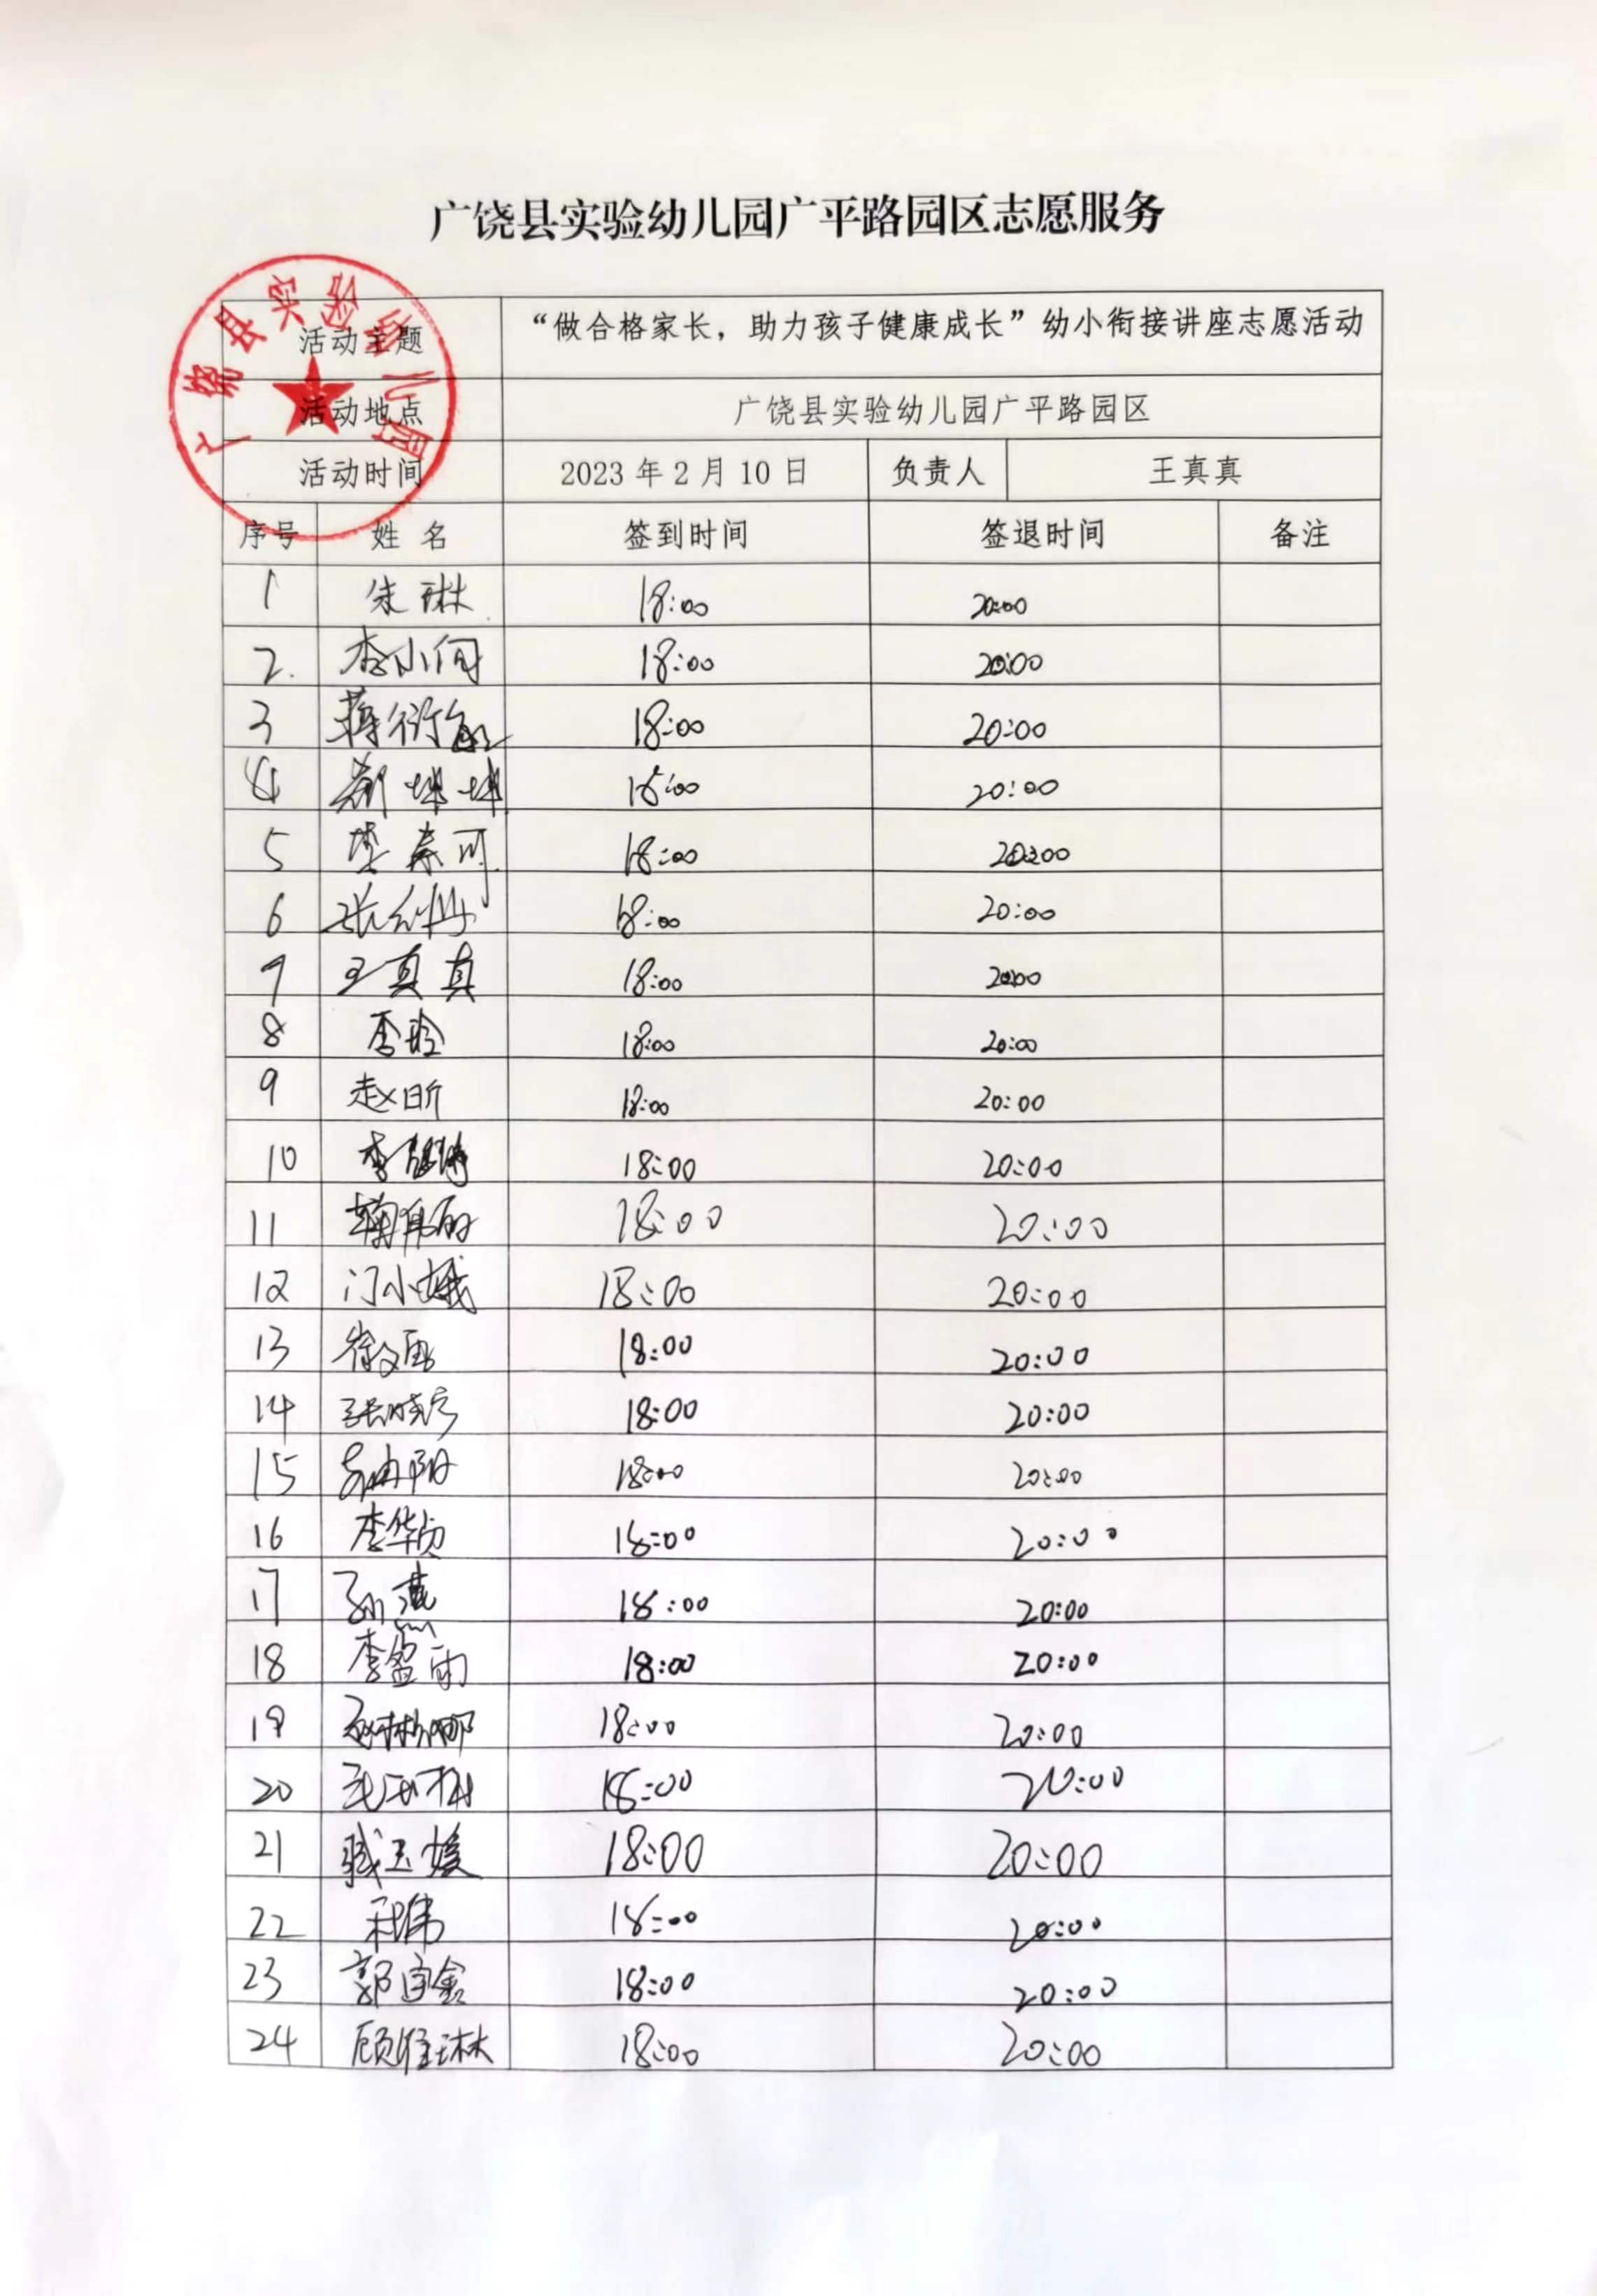 广饶县实验幼儿园广平路园区志愿服务
广饶县实验幼儿园
活动主题 “做合格家长，助力孩子健康成长”幼小衔接讲座志愿活动
活动地点 广饶县实验幼儿园广平路园区
活动时间 2023年2月10日 负责人 王真真
序号 姓名 签到时间 签退时间 备注
1 朱琳 18:00 20:00
2. 李小何 18:00 20:00
3 蒋衍 18:00 20:00
4 坤坤 18:00 20:00
5 李春可 18:00 20:00
6 张 18:00 20:00
7 王真真 18:00 20:00
8 李玲 18:00 20:00
9 赵昕 18:00 20:00
10 李 18:00 20:00
11 18:00 20:00
12 门小娥 18:00 20:00
13 徐文画 18:00 20:00
14 张晓 18:00 20:00
15 阳 18:00 20:00
16 李华贞 18:00 20:00
17 孙燕 18:00 20:00
18 李盈雨 18:00 20:00
19 赵彬娜 18:00 20:00
20 18:00 20:00
21 臧玉媛 18:00 20:00
22 伟 18:00 20:00
23 郭宝鑫 18:00 20:00
24 顾佳琳 18:00 20:00